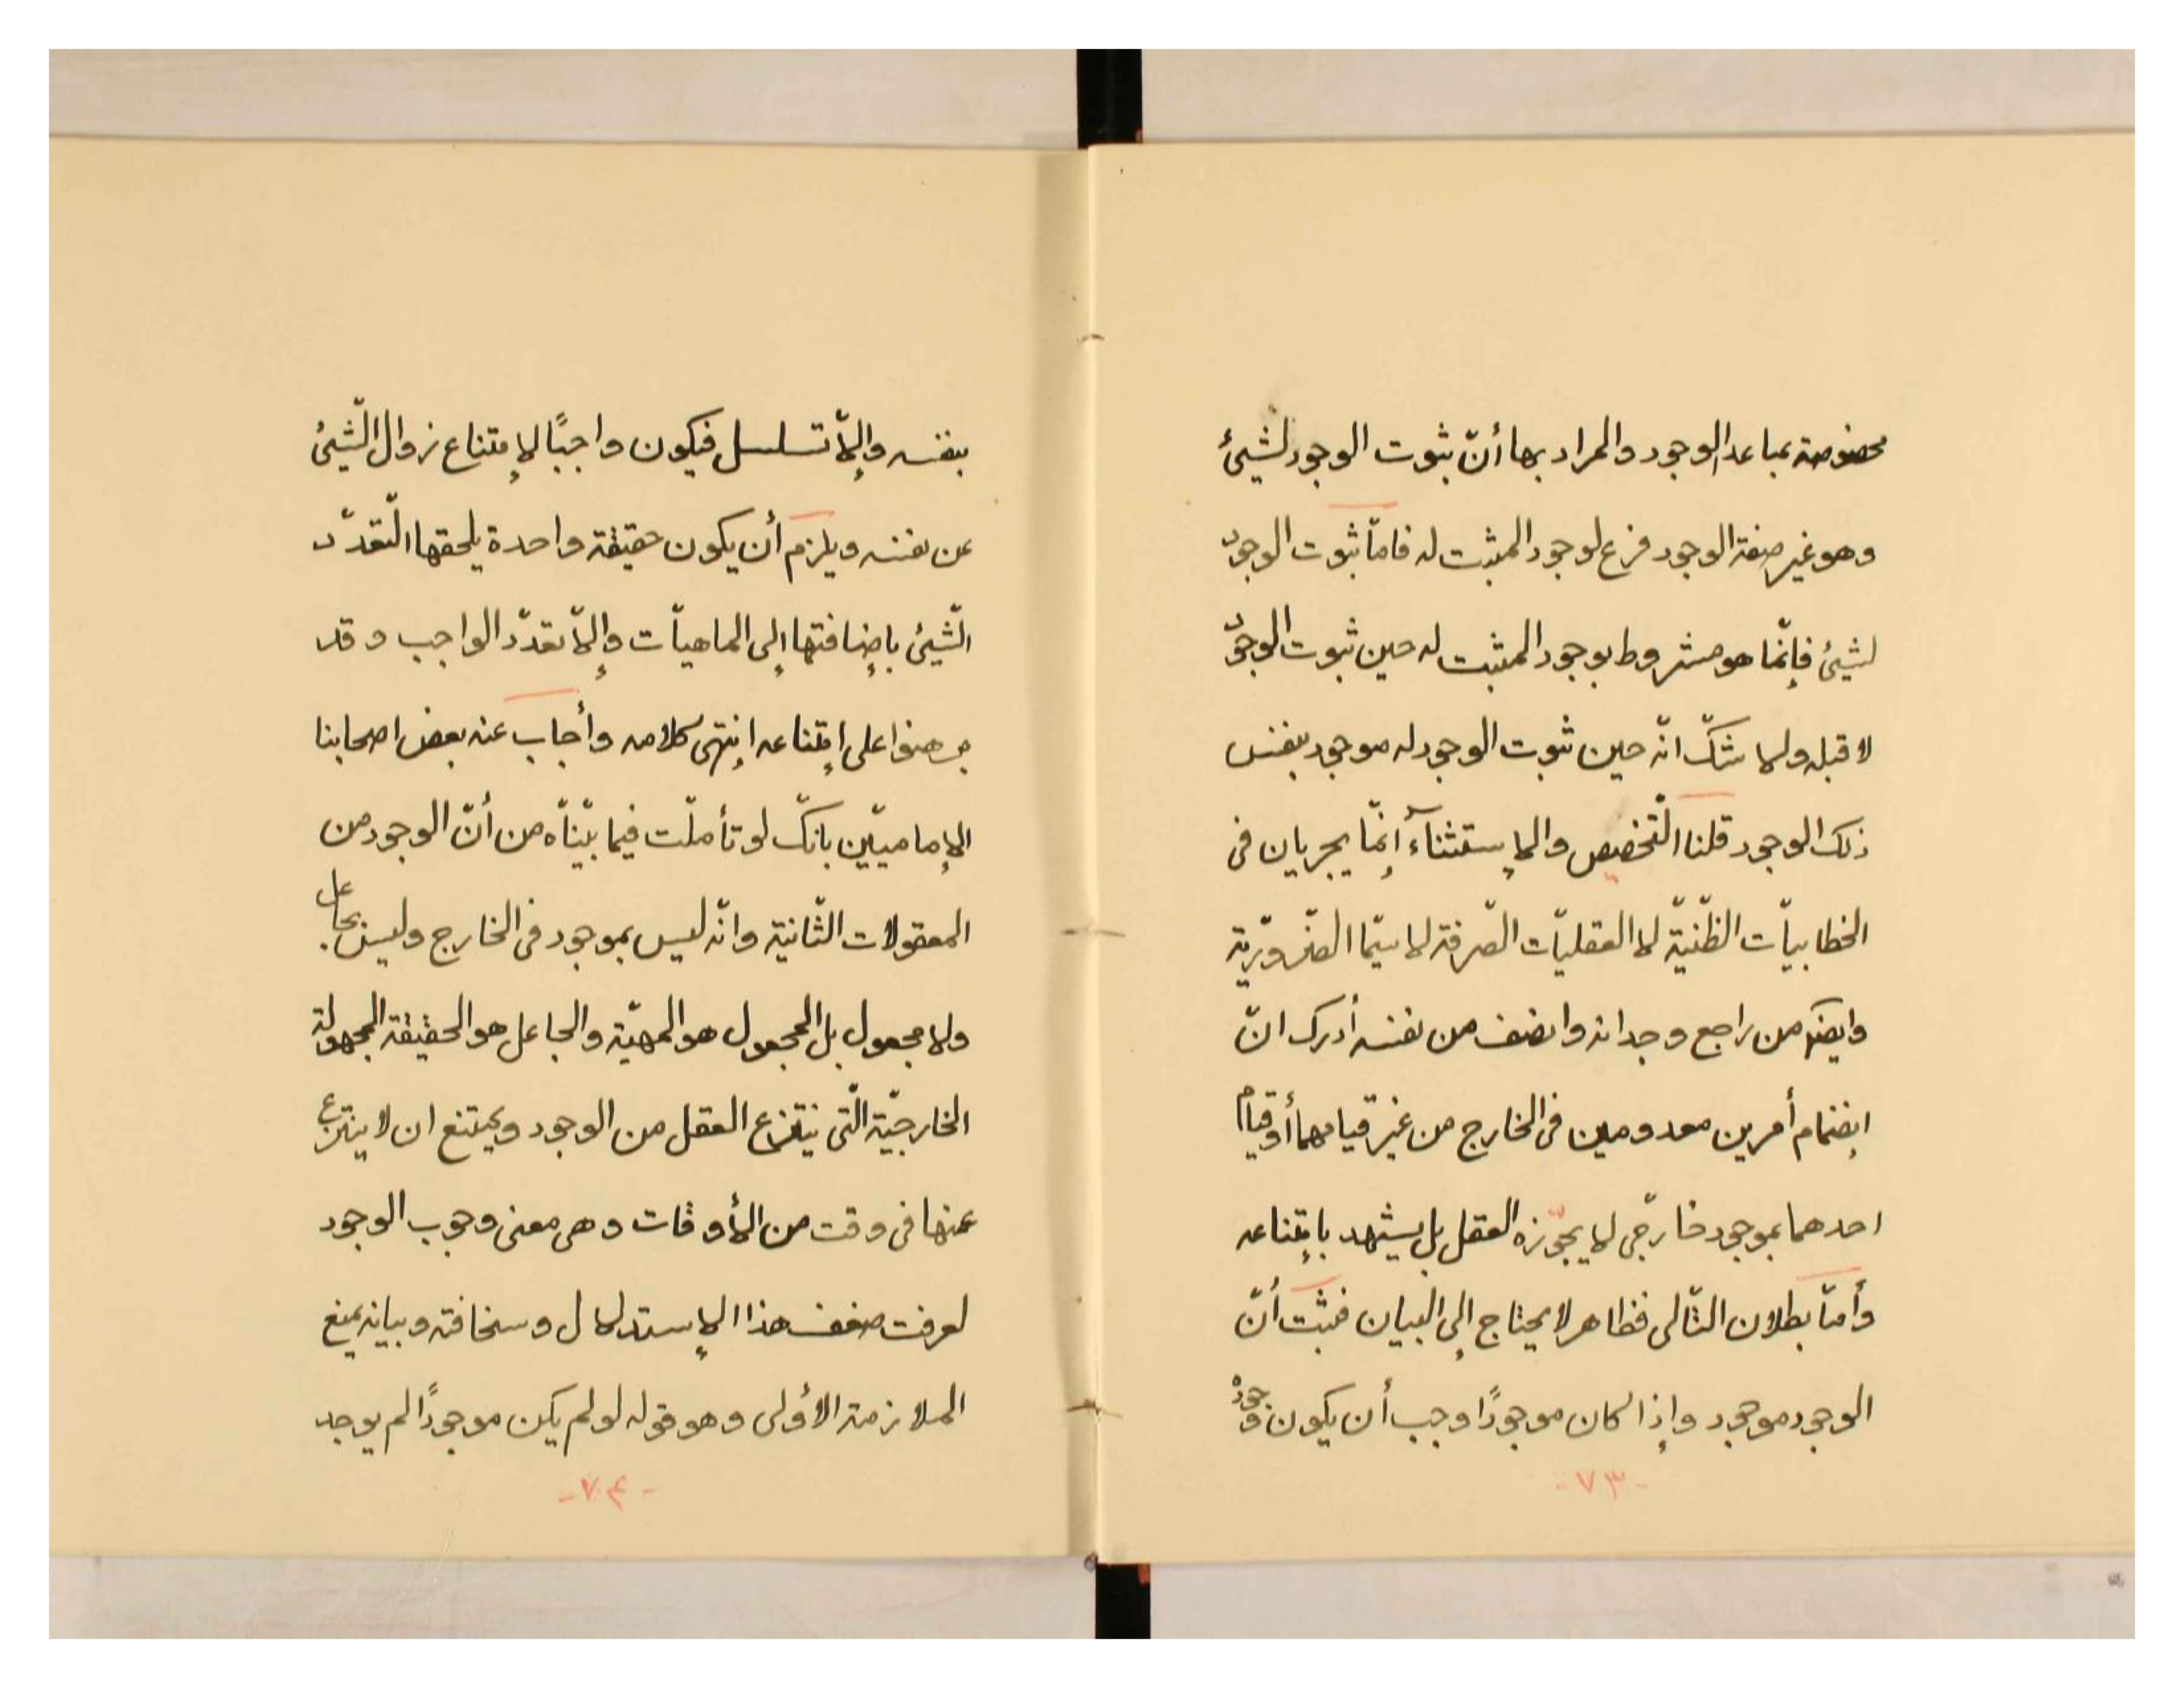 مخصوصة بماعد الوجود والمراد بها أنّ ثبوت الوجود لشيئ
وهو غير صفة الوجود فرع لوجود المثبت له فامّا ثبوت الوجود
لشيئ فإنّما هو مشروط بوجود المثبت له حين ثبوت الوجود
لا قبله ولا شكّ انّه حين ثبوت الوجود له موجود بنفس
ذلك الوجود قلنا التّخصيص والإستثناء إنّما يجريان فى
الخطابيّات الظّنيّة لا العقليّات الصّرفة لا سيّما الضّروريّة
وايضا من راجع وجدانه وانصف من نفسه أدرك انّ
إنضمام أمرين معدومين فى الخارج من غير قيامهما أو قيام
احدهما بموجود خارجّى لا يجوّزه العقل بل يشهد بامتناعه
وأمّا بطلان التّالى فظاهر لا يحتاج إلى البيان فثبت أنّ
الوجود موجود وإذا كان موجودًا وجب أن يكون وجوده
- ٧٣ -
بنفسه وإلاّ تسلسل فيكون واجبًا لإمتناع زوال الشّيئ
عن نفسه ويلزم أن يكون حقيقة واحدة يلحقها التّعدّد
الشّيئ بإضافتها إلى الماهيّات وإلاّ تعدّد الواجب وقد
برهنوا على إمتناعه إنتهى كلامه وأجاب عنه بعض اصحابنا
الإماميّين بانّك لو تأملّت فيما بيّنّاه من أنّ الوجود من
المعقولات الثّانية وانّه ليس بموجود فى الخارج وليس بجاعل
ولا مجعول بل المجعول هو المهيّة والجاعل هو الحقيقة المجهولة
الخارجيّة الّتى ينتزع العقل من الوجود ويمتنع ان لا ينتزع
عنها فى وقت من الأوقات وهى معنى وجوب الوجود
لعرفت ضعف هذا الإستدلال وسخافته وبيانه بمنع
الملازمة الأولى وهو قوله لو لم يكن موجودًا لم يوجد
- ٧٤ -